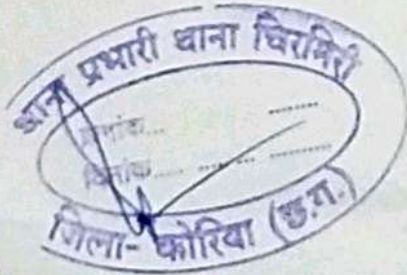 थाना प्रभारी थाना चिरमिरी
क्रमांक... ........
दिनांक.... ........ ........
जिला- कोरिया (छ.ग.)